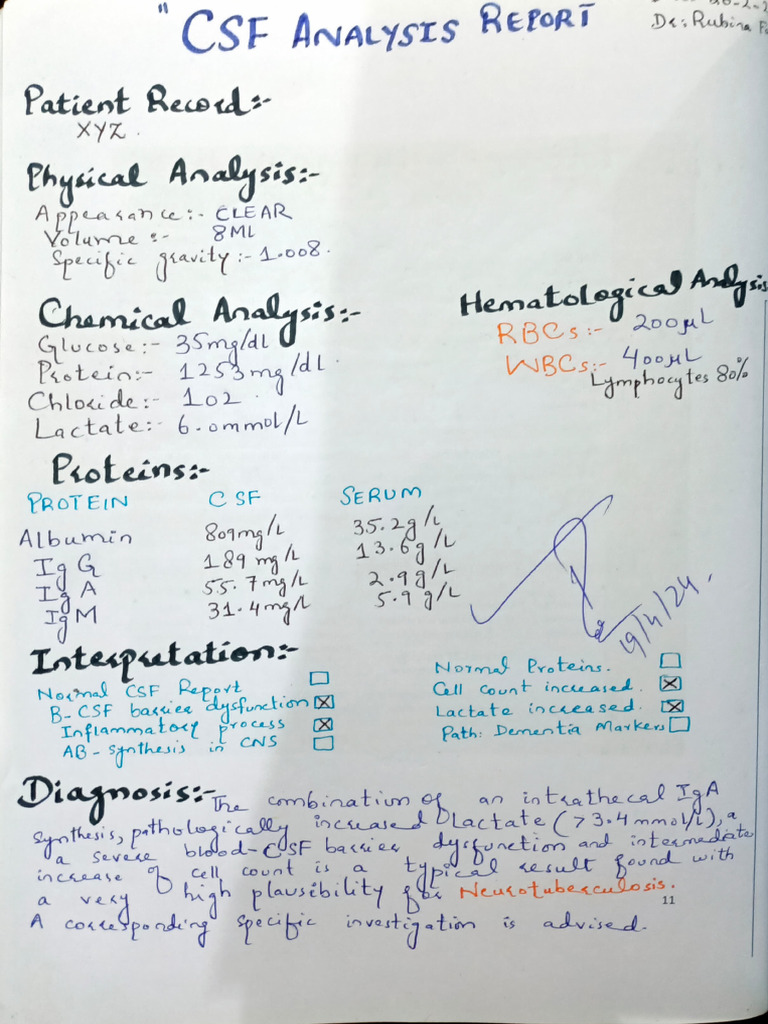 "CSF ANALYSIS REPORT
Dr: Rubina
Patient Record:-
XYZ.
Physical Analysis:-
Appearance:- CLEAR
Volume:- 8ML
Specific gravity:- 1.008.
Chemical Analysis:-
Glucose:- 35mg/dL
Protein:- 1253mg/dL.
Chloride:- 102.
Lactate:- 6.0mmol/L
Hematological Analysis
RBCs:- 200µL
WBCs:- 400µL
Lymphocytes 80%
Proteins:-
PROTEIN CSF SERUM
Albumin 809mg/L 35.2g/L
IgG 189mg/L 13.6g/L
IgA 55.7mg/L 2.9g/L
IgM 31.4mg/L 5.9g/L
19/4/24.
Interpretation:-
Normal CSF Report
B-CSF barrier dysfunction
Inflammatory process
AB-synthesis in CNS
Normal Proteins.
Cell count increased.
Lactate increased.
Path: Dementia Markers
Diagnosis:- The combination of an intrathecal IgA
synthesis, pathologically increased Lactate (>3.4mmol/L), a
a severe blood-CSF barrier dysfunction and intermediate
increase of cell count is a typical result found with
a very high plausibility for Neurotuberculosis.
11
A corresponding specific investigation is advised.